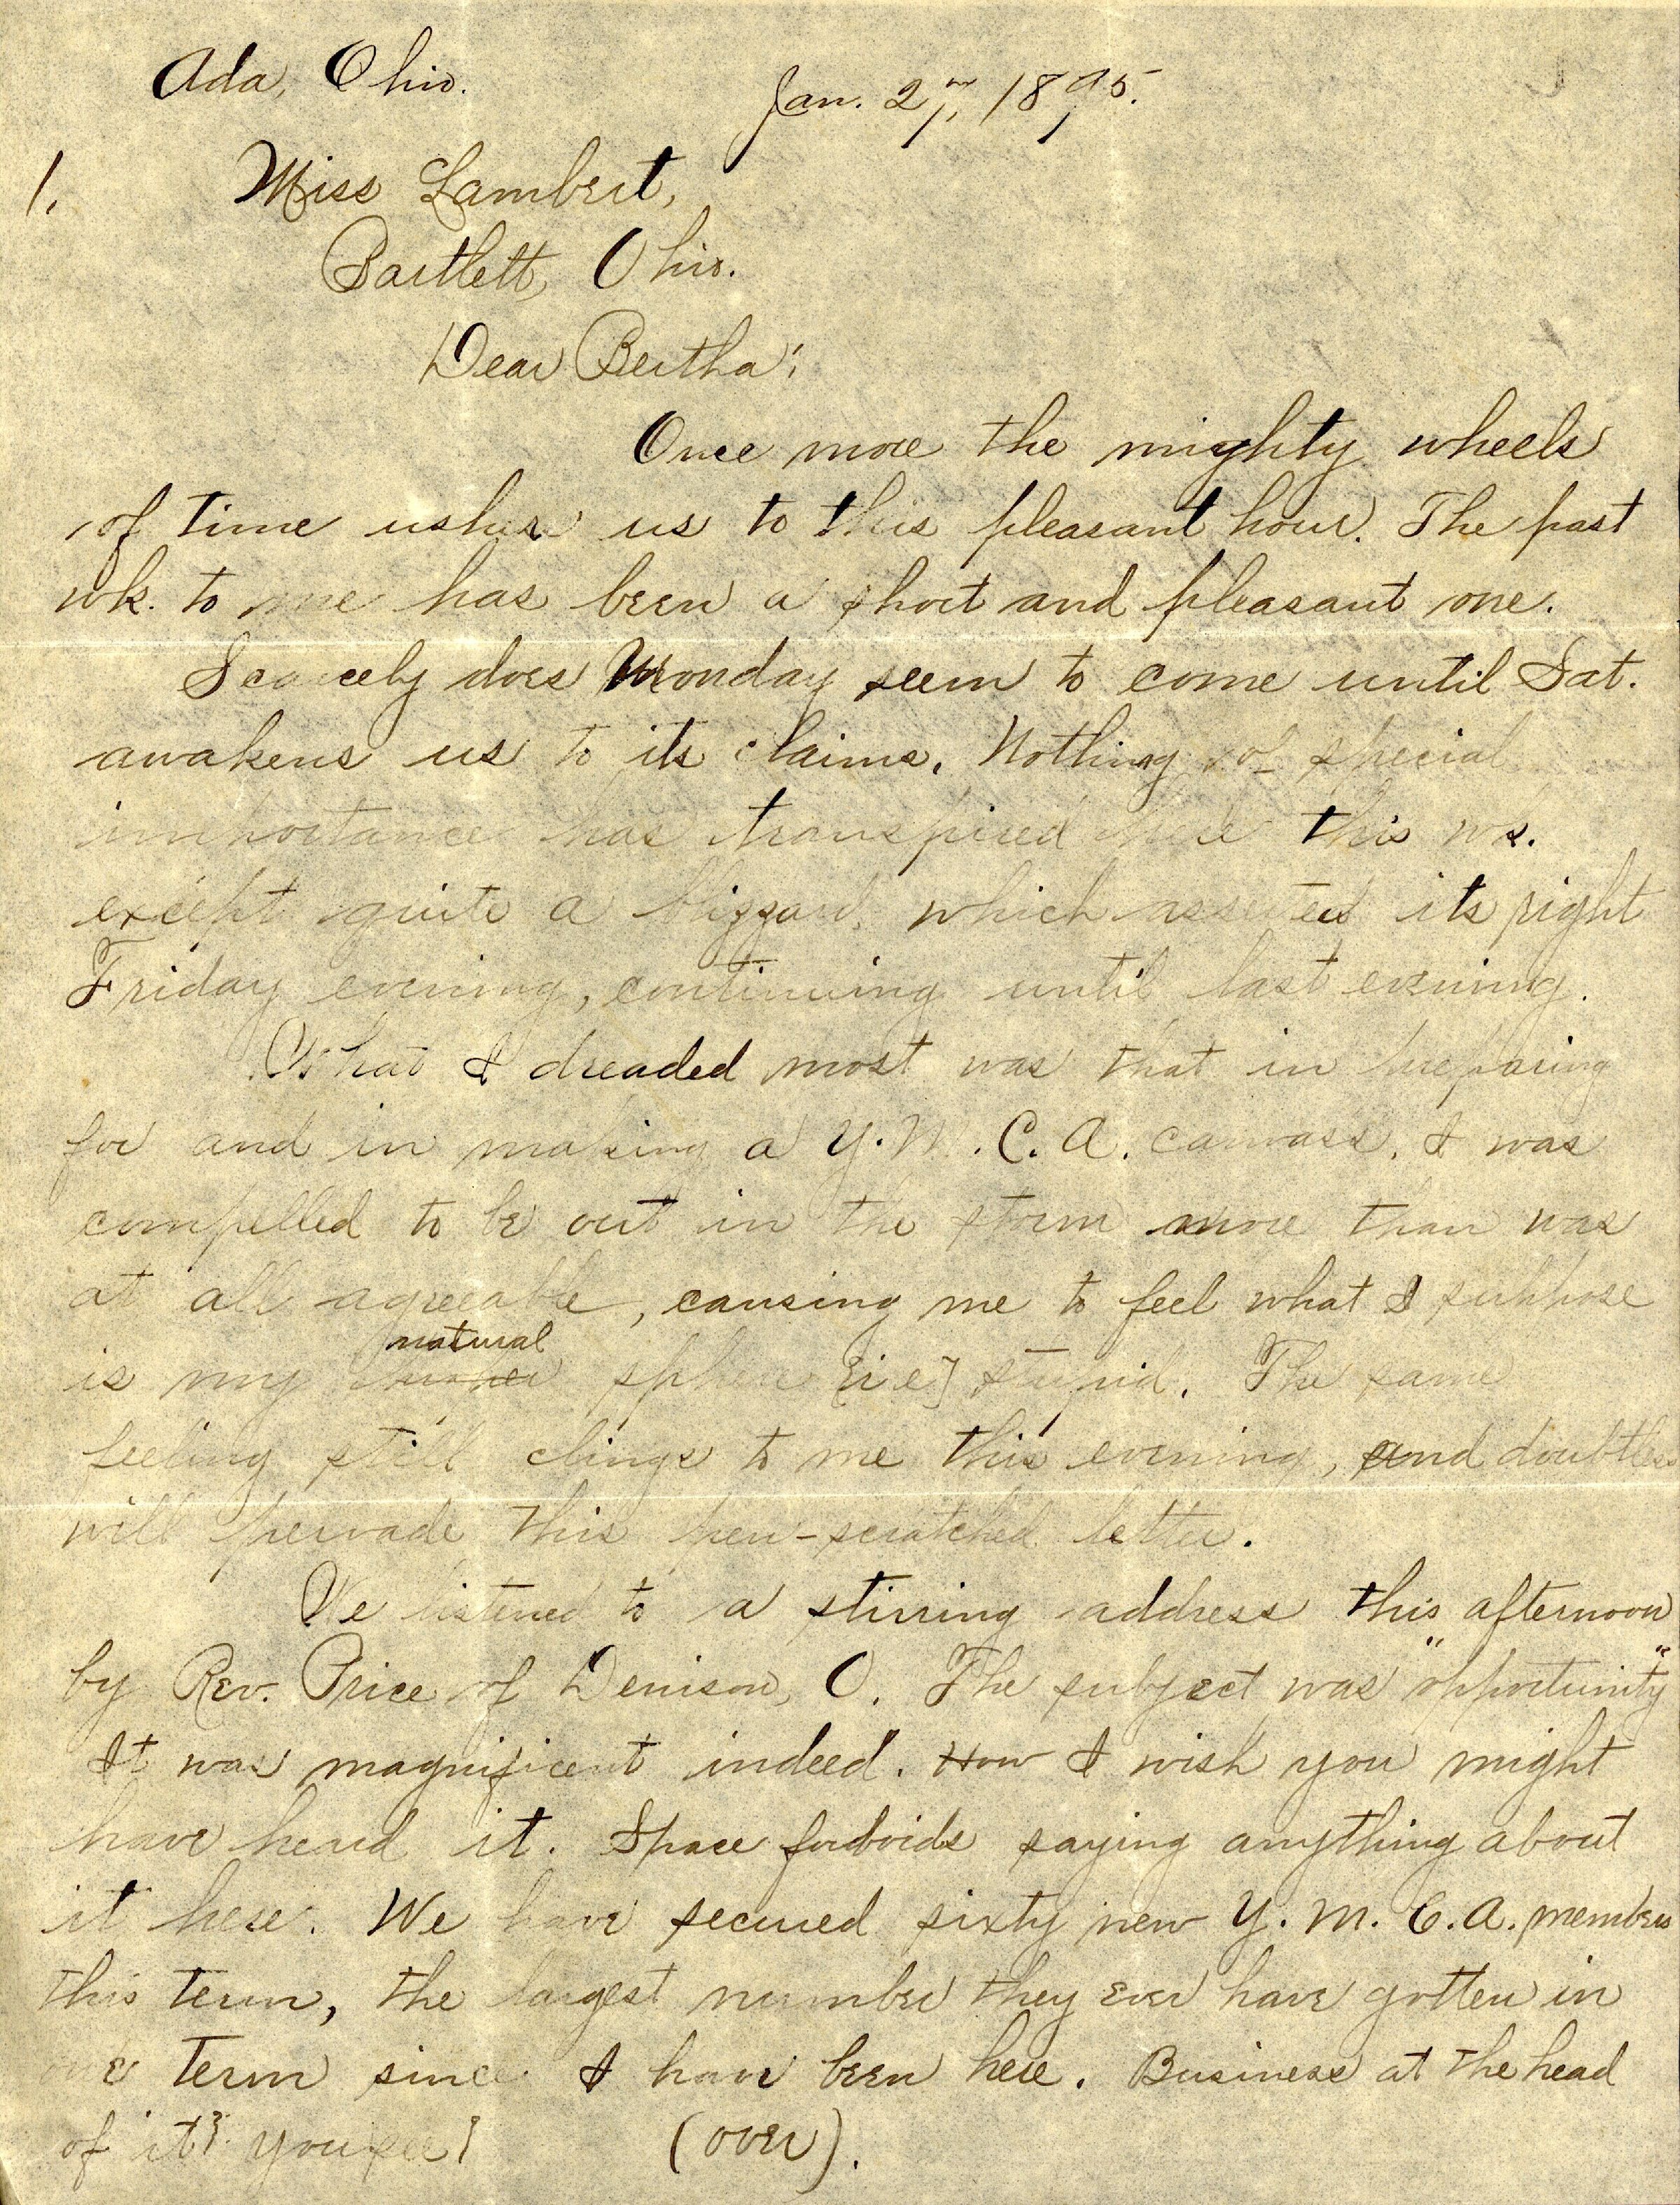 Ada, Ohio.
Jan. 27, 1895.
1.
Miss Lambert,
Bartlett, Ohio.
Dear Bertha;
Once more the mighty wheels
of time usher us to this pleasant hour. The past
wk. to me has been a short and pleasant one.
Scarcely does Monday seem to come until Sat.
awakens us to its claims. Nothing of special
importance has transpired here this wk.
except quite a blizzard, which asserted its right
Friday evening, continuing until last evening.
What I dreaded most was that in preparing
for and in making a Y.M.C.A. canvass, I was
compelled to be out in the storm more than was
at all agreeable, causing me to feel what I suppose
natural
is my sphere [i.e] stupid. The same
feeling still clings to me this evening, and doubtless
will pervade this pen-scratched letter.
We listened to a stirring address this afternoon
by Rev. Price of Denison, O. The subject was "opportunity"
It was magnificent indeed. How I wish you might
have heard it. Space forboids saying anything about
it here. We have secured sixty new Y.M.C.A. members
this term, the largest number they ever have gotten in
one term since I have been here. Business at the head
of it? you see!
(over).